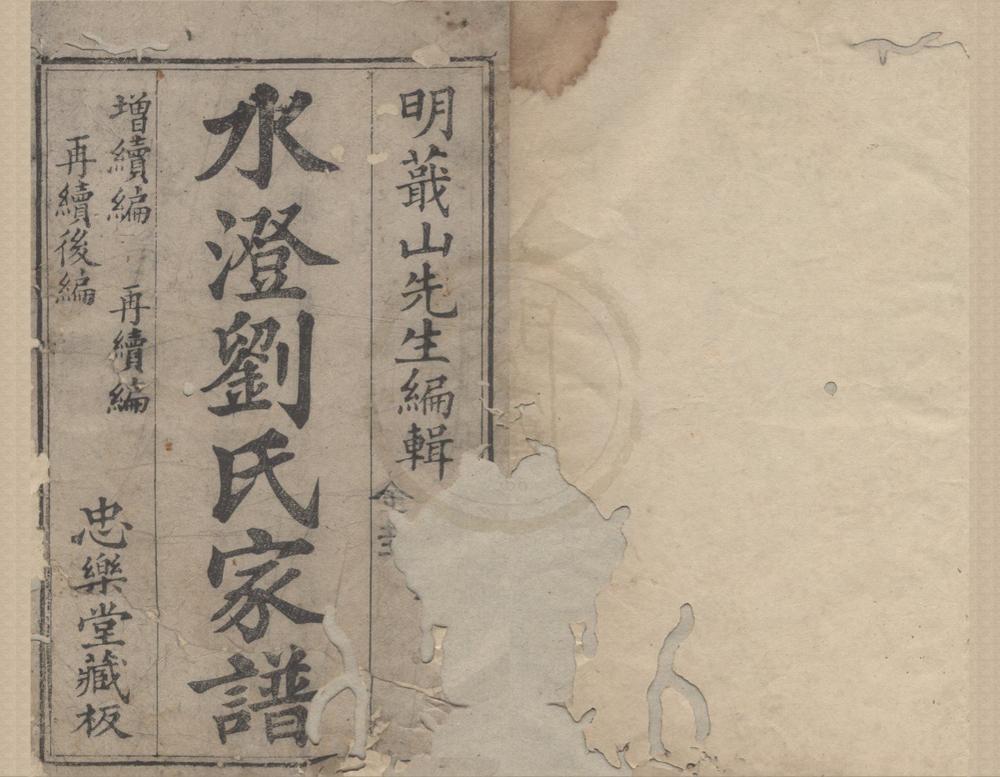 明蕺山先生編輯
水澄劉氏家譜
增續編 再續編
再續後編
忠樂堂藏板